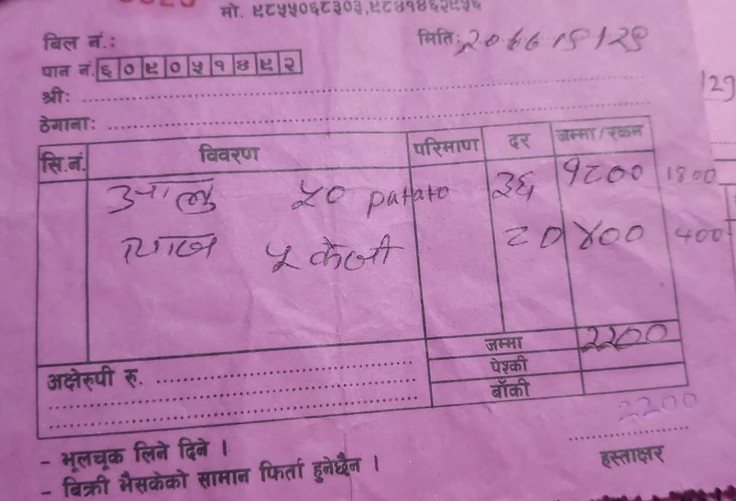 मो. ९८५५०६८३०३,९८४५१४६२९५६
बिल नं.:
मिति:
पान नं. ६०९०५१४९२
श्री:
ठेगाना:
सि.नं. विवरण परिमाण दर जम्मा/रकम
आलु ५० patato ३६ १८०० 1800
प्याज ५ केजी ८० ४०० 400
जम्मा 2200
अक्षेरुपी रु.
पेश्की
बाँकी
2200
- भूलचूक लिने दिने ।
- बिक्री भैसकेको सामान फिर्ता हुनेछैन ।
हस्ताक्षर